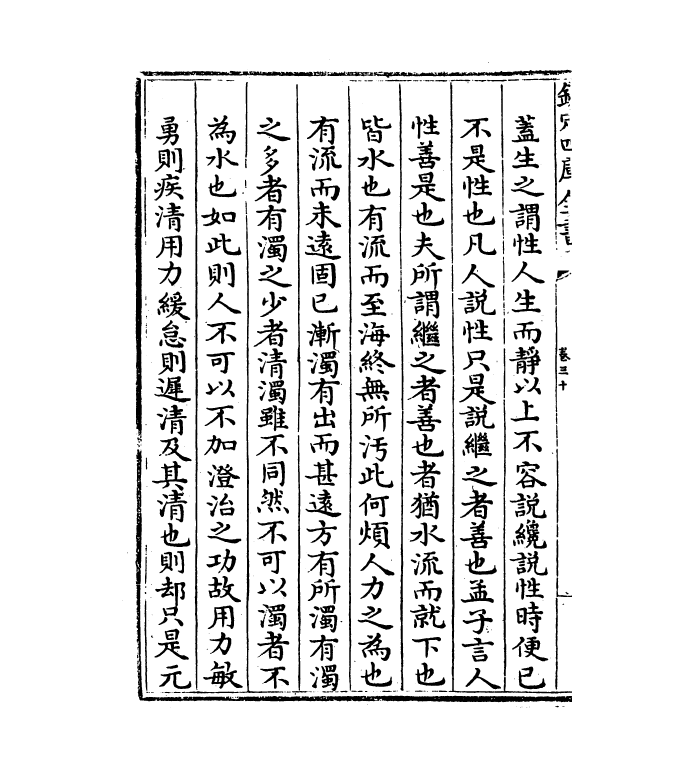 欽定四庫全書
卷三十
蓋生之謂性人生而靜以上不容説纔説性時便已
不是性也凡人説性只是説繼之者善也孟子言人
性善是也夫所謂繼之者善也者猶水流而就下也
皆水也有流而至海終無所汚此何煩人力之為也
有流而未遠固已漸濁有出而甚逺方有所濁有濁
之多者有濁之少者清濁雖不同然不可以濁者不
為水也如此則人不可以不加澄治之功故用力敏
勇則疾清用力緩怠則遲清及其清也則却只是元